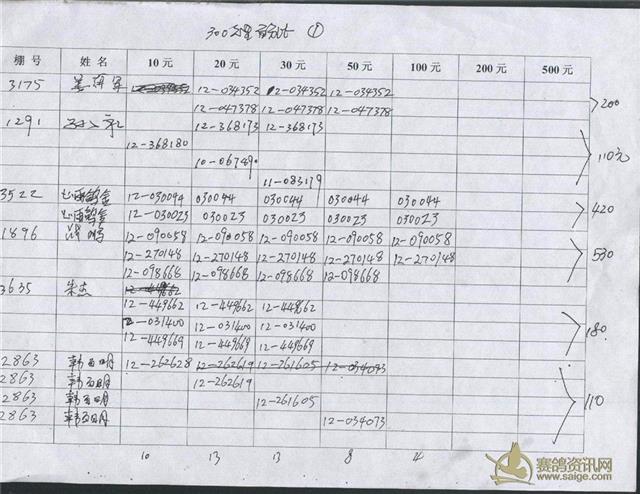 300公里 ①
棚号 姓名 10元 20元 30元 50元 100元 200元 500元
3175 12-034352 12-034352 12-034352
12-047378 12-047378 12-047378 >200
1291 12-368173 12-368173
12-368180
10-067490 110元
11-083179
3522 12-030044 030044 030044 030044 030044
12-030023 030023 030023 030023 030023 420
1896 12-090058 12-090058 12-090058 12-090058 12-090058
12-270148 12-270148 12-270148 12-270148 12-270148 530
12-098668 12-098668 12-098668 12-098668
3635 朱杰 12-449662
12-449662 12-449662 12-449662
12-031400 12-031400 12-031400 180
12-449669 12-449669 12-449669
2863 韩百明 12-262628 12-262619 12-261605 12-034073
2863 韩百明 12-262619
2863 韩百明 12-261605 110
2863 韩百明 12-034073
10 13 13 8 4
赛鸽资讯网
www.saige.com